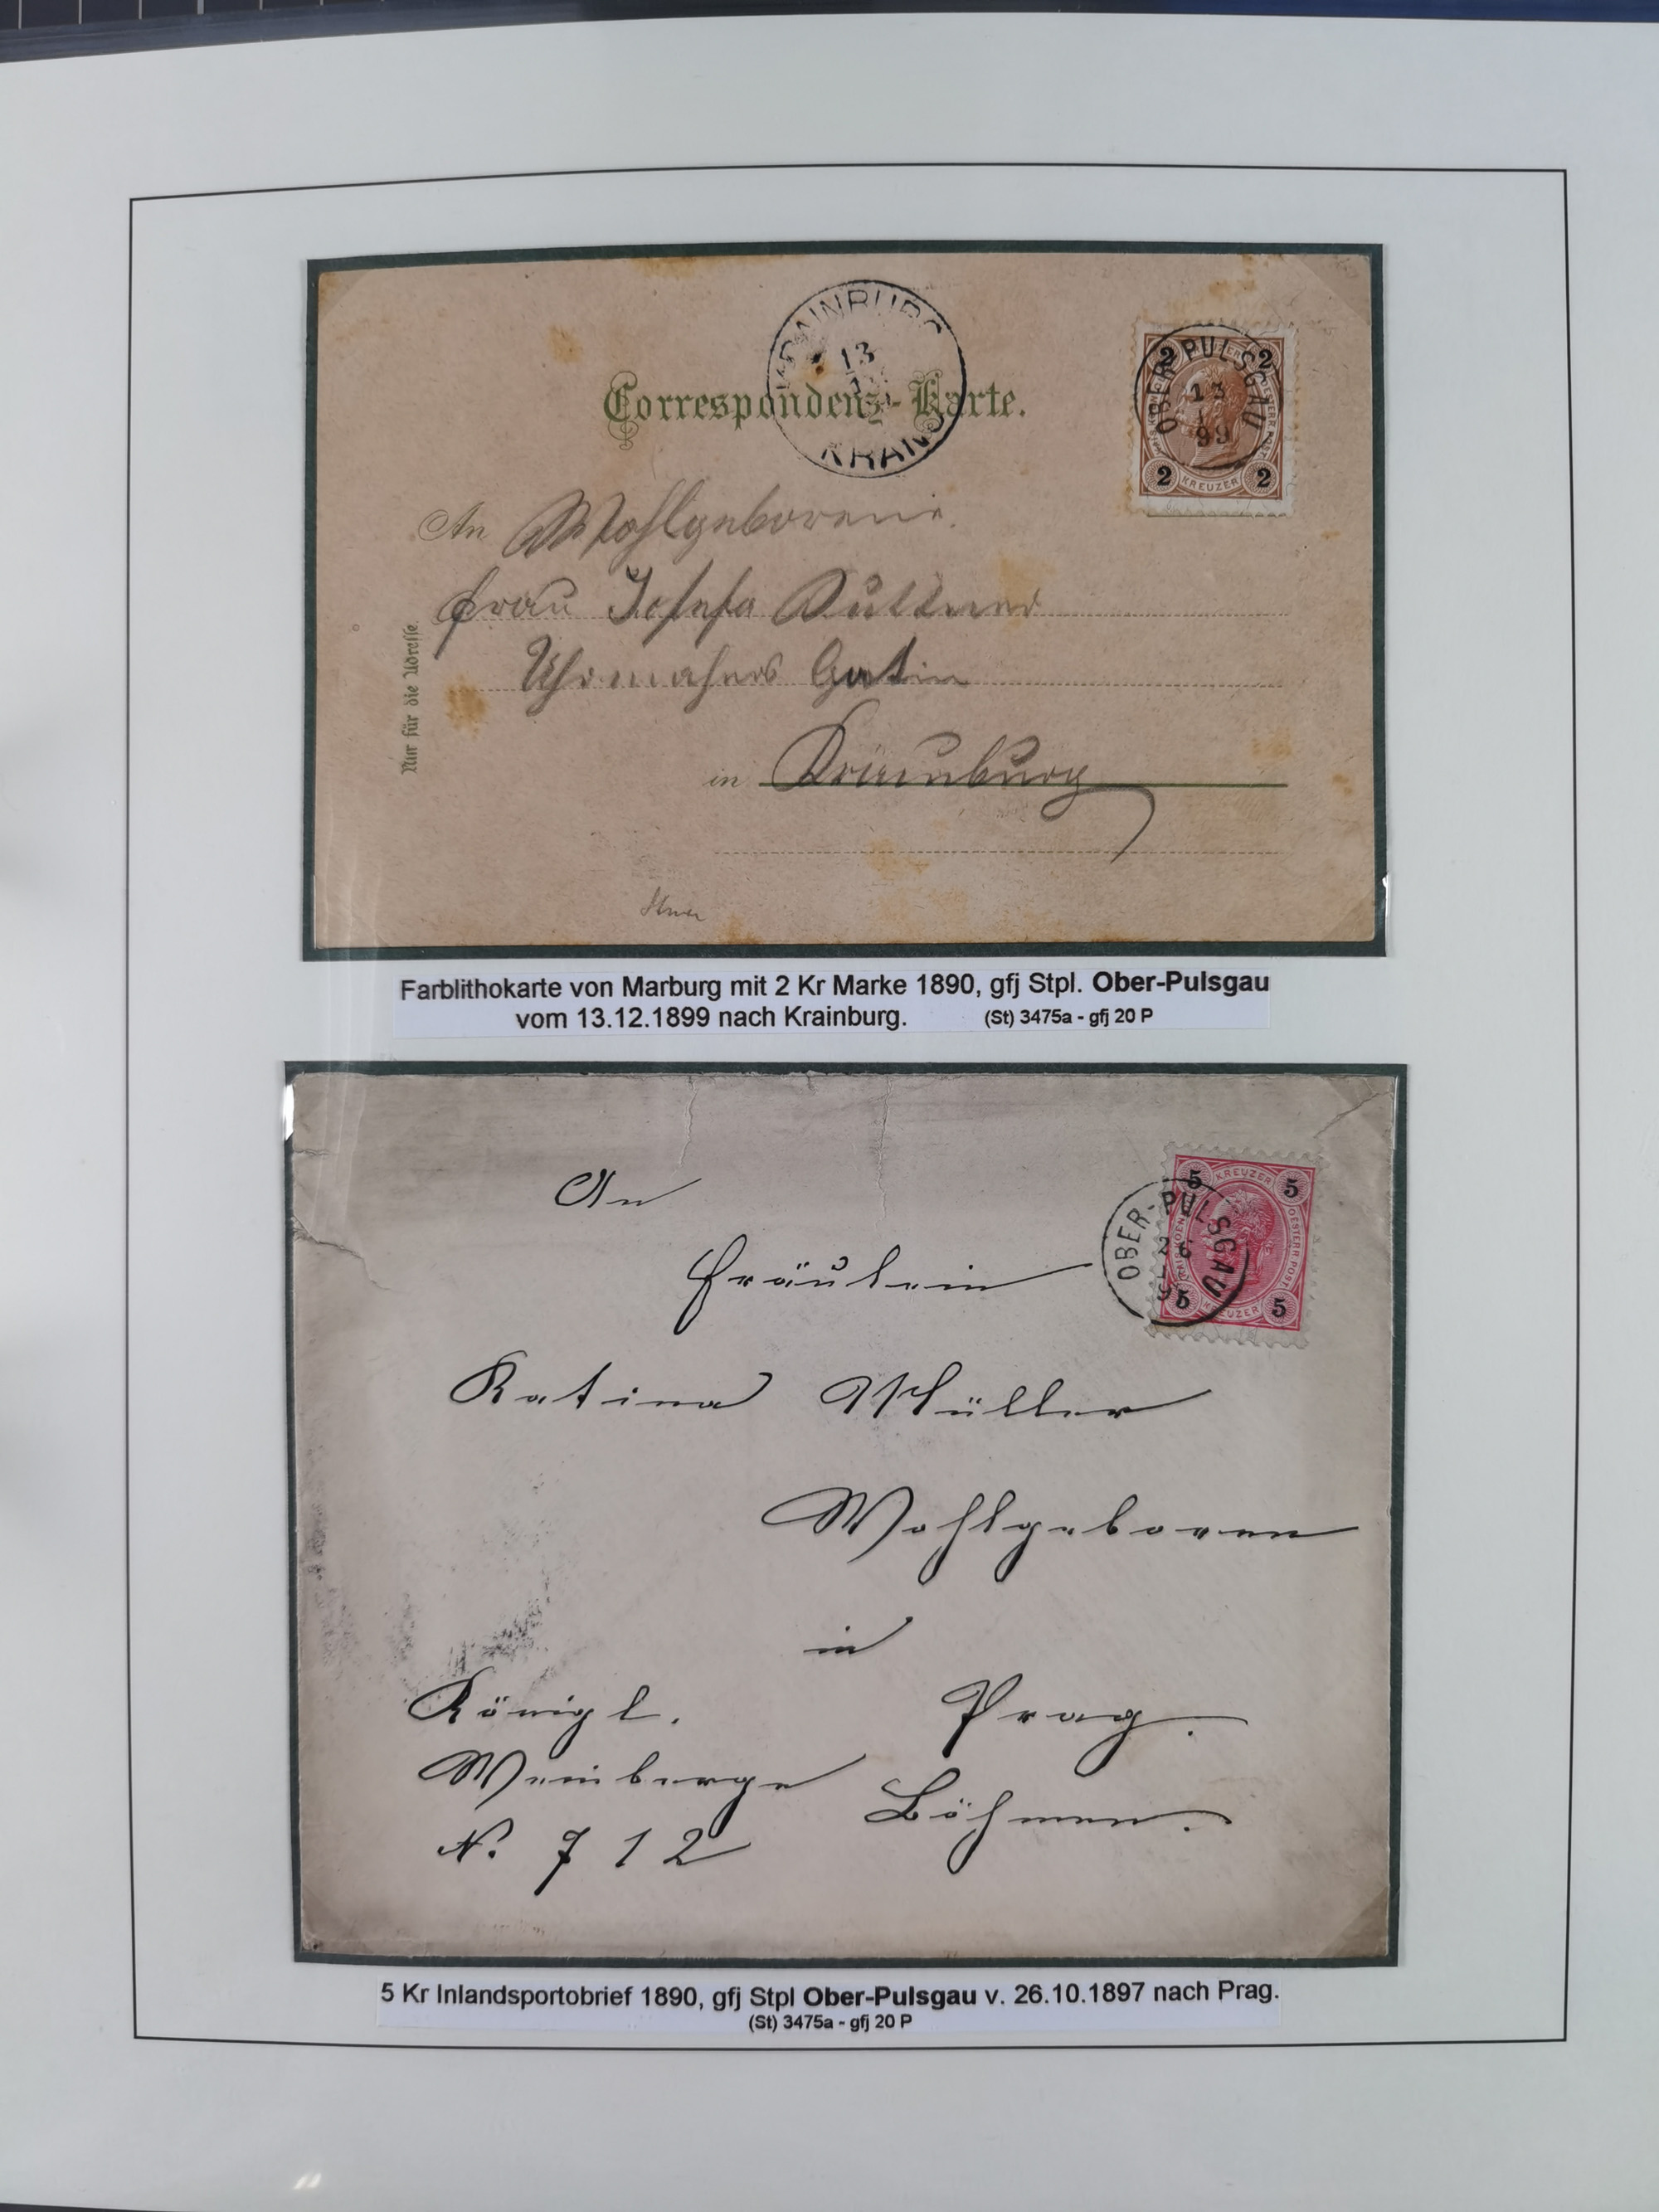 KRAINBURG
13
KRAIN
Correspondenz-Karte.
2 KREUZER 2
OBER-PULSGAU
13
99
2 KREUZER 2
An Wohlgeborene.
Frau Josefa
Uhrmahers Gatin
in Krainburg
Nur für die Adresse.
Farblithokarte von Marburg mit 2 Kr Marke 1890, gfj Stpl. Ober-Pulsgau
vom 13.12.1899 nach Krainburg. (St) 3475a - gfj 20 P
5 KREUZER 5
OBER-PULSGAU
26
OESTERR. POST.
5 KREUZER 5
An
Fräulein
Katina Müller
Wohlgeboren
in
Königl. Prag.
Weinberge Böhmen.
N. 712
5 Kr Inlandsportobrief 1890, gfj Stpl Ober-Pulsgau v. 26.10.1897 nach Prag.
(St) 3475a - gfj 20 P